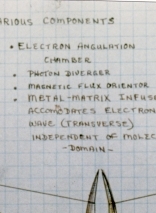 ARIOUS COMPONENTS
• ELECTRON ANGULATION
CHAMBER
• PHOTON DIVERGER
• MAGNETIC FLUX ORIENTOR
• METAL-MATRIX INFUS
ACCOMODATES ELECTRON
WAVE (TRANSVERSE)
INDEPENDENT OF MOLEC
-DOMAIN-